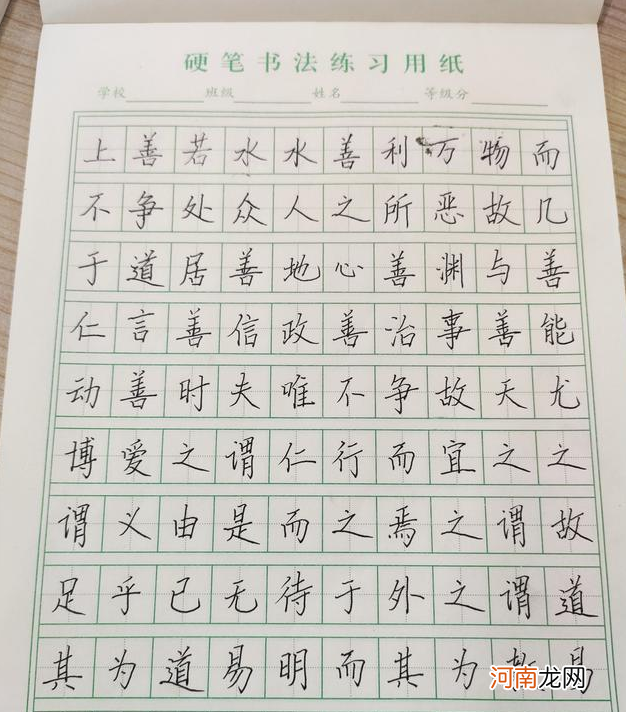 硬笔书法练习用纸
学校 班级 姓名 等级分
上善若水水善利万物而
不争处众人之所恶故几
于道居善地心善渊与善
仁言善信政善治事善能
动善时夫唯不争故天尤
博爱之谓仁行而宜之之
谓义由是而之焉之谓故
足乎已无待于外之谓道
其为道易明而其为易
河南龙网